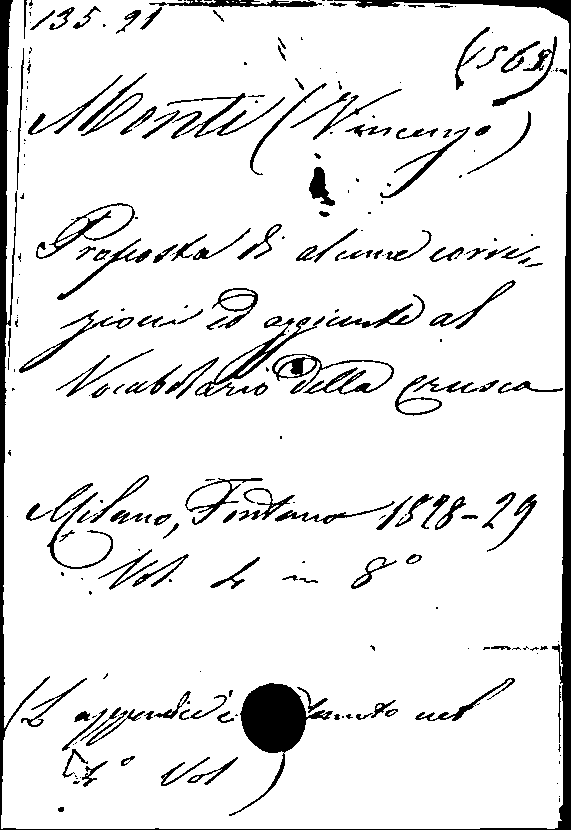 135.21
(1568)
Monti (Vincenzo)
Proposta di alcune corre-
zioni ed aggiunte al
Vocabolario della Crusca
Milano, Fontana 1828-29
Vol. 4 in 8°
(L'appendice è nel
4° Vol)